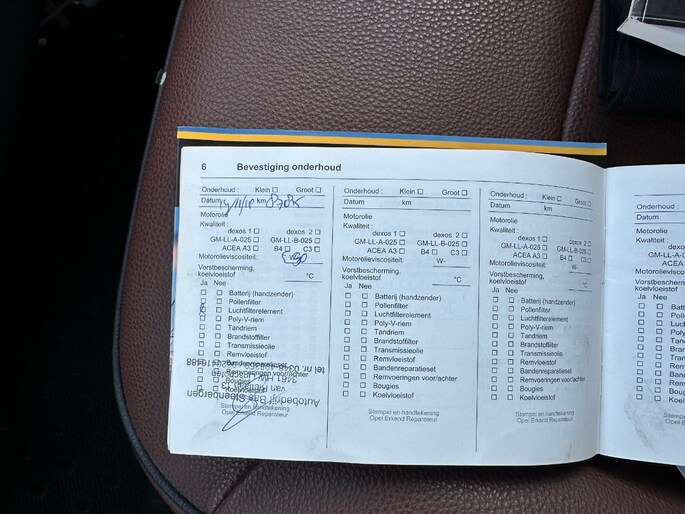 6 Bevestiging onderhoud
Onderhoud : Klein Groot
Datum km
Motorolie
Kwaliteit :
dexos 1 dexos 2
GM-LL-A-025 GM-LL-B-025
ACEA A3 B4 C3
Motorolieviscositeit: W30
Vorstbescherming, koelvloeistof °C
Ja Nee
Batterij (handzender)
Pollenfilter
Luchtfilterelement
Poly-V-riem
Tandriem
Brandstoffilter
Transmissieolie
Remvloeistof
Bandenreparatieset
Remvoeringen voor/achter
Bougies
Koelvloeistof
Autobedrijf Bas Steenbergen
Stempel en handtekening
Opel Erkend Reparateur
Onderhoud : Klein Groot
Datum km
Motorolie
Kwaliteit :
dexos 1 dexos 2
GM-LL-A-025 GM-LL-B-025
ACEA A3 B4 C3
Motorolieviscositeit: W-
Vorstbescherming,
koelvloeistof °C
Ja Nee
Batterij (handzender)
Pollenfilter
Luchtfilterelement
Poly-V-riem
Tandriem
Brandstoffilter
Transmissieolie
Remvloeistof
Bandenreparatieset
Remvoeringen voor/achter
Bougies
Koelvloeistof
Stempel en handtekening
Opel Erkend Reparateur
Onderhoud : Klein Groot
Datum km
Motorolie
Kwaliteit :
dexos 1 dexos 2
GM-LL-A-025 GM-LL-B-025
ACEA A3 B4 C3
Motorolieviscositeit: W-
Vorstbescherming,
koelvloeistof °C
Ja Nee
Batterij (handzender)
Pollenfilter
Luchtfilterelement
Poly-V-riem
Tandriem
Brandstoffilter
Transmissieolie
Remvloeistof
Bandenreparatieset
Remvoeringen voor/achter
Bougies
Koelvloeistof
Stempel en handtekening
Opel Erkend Reparateur
Onderhoud :
Datum
Motorolie
Kwaliteit :
Ja Nee